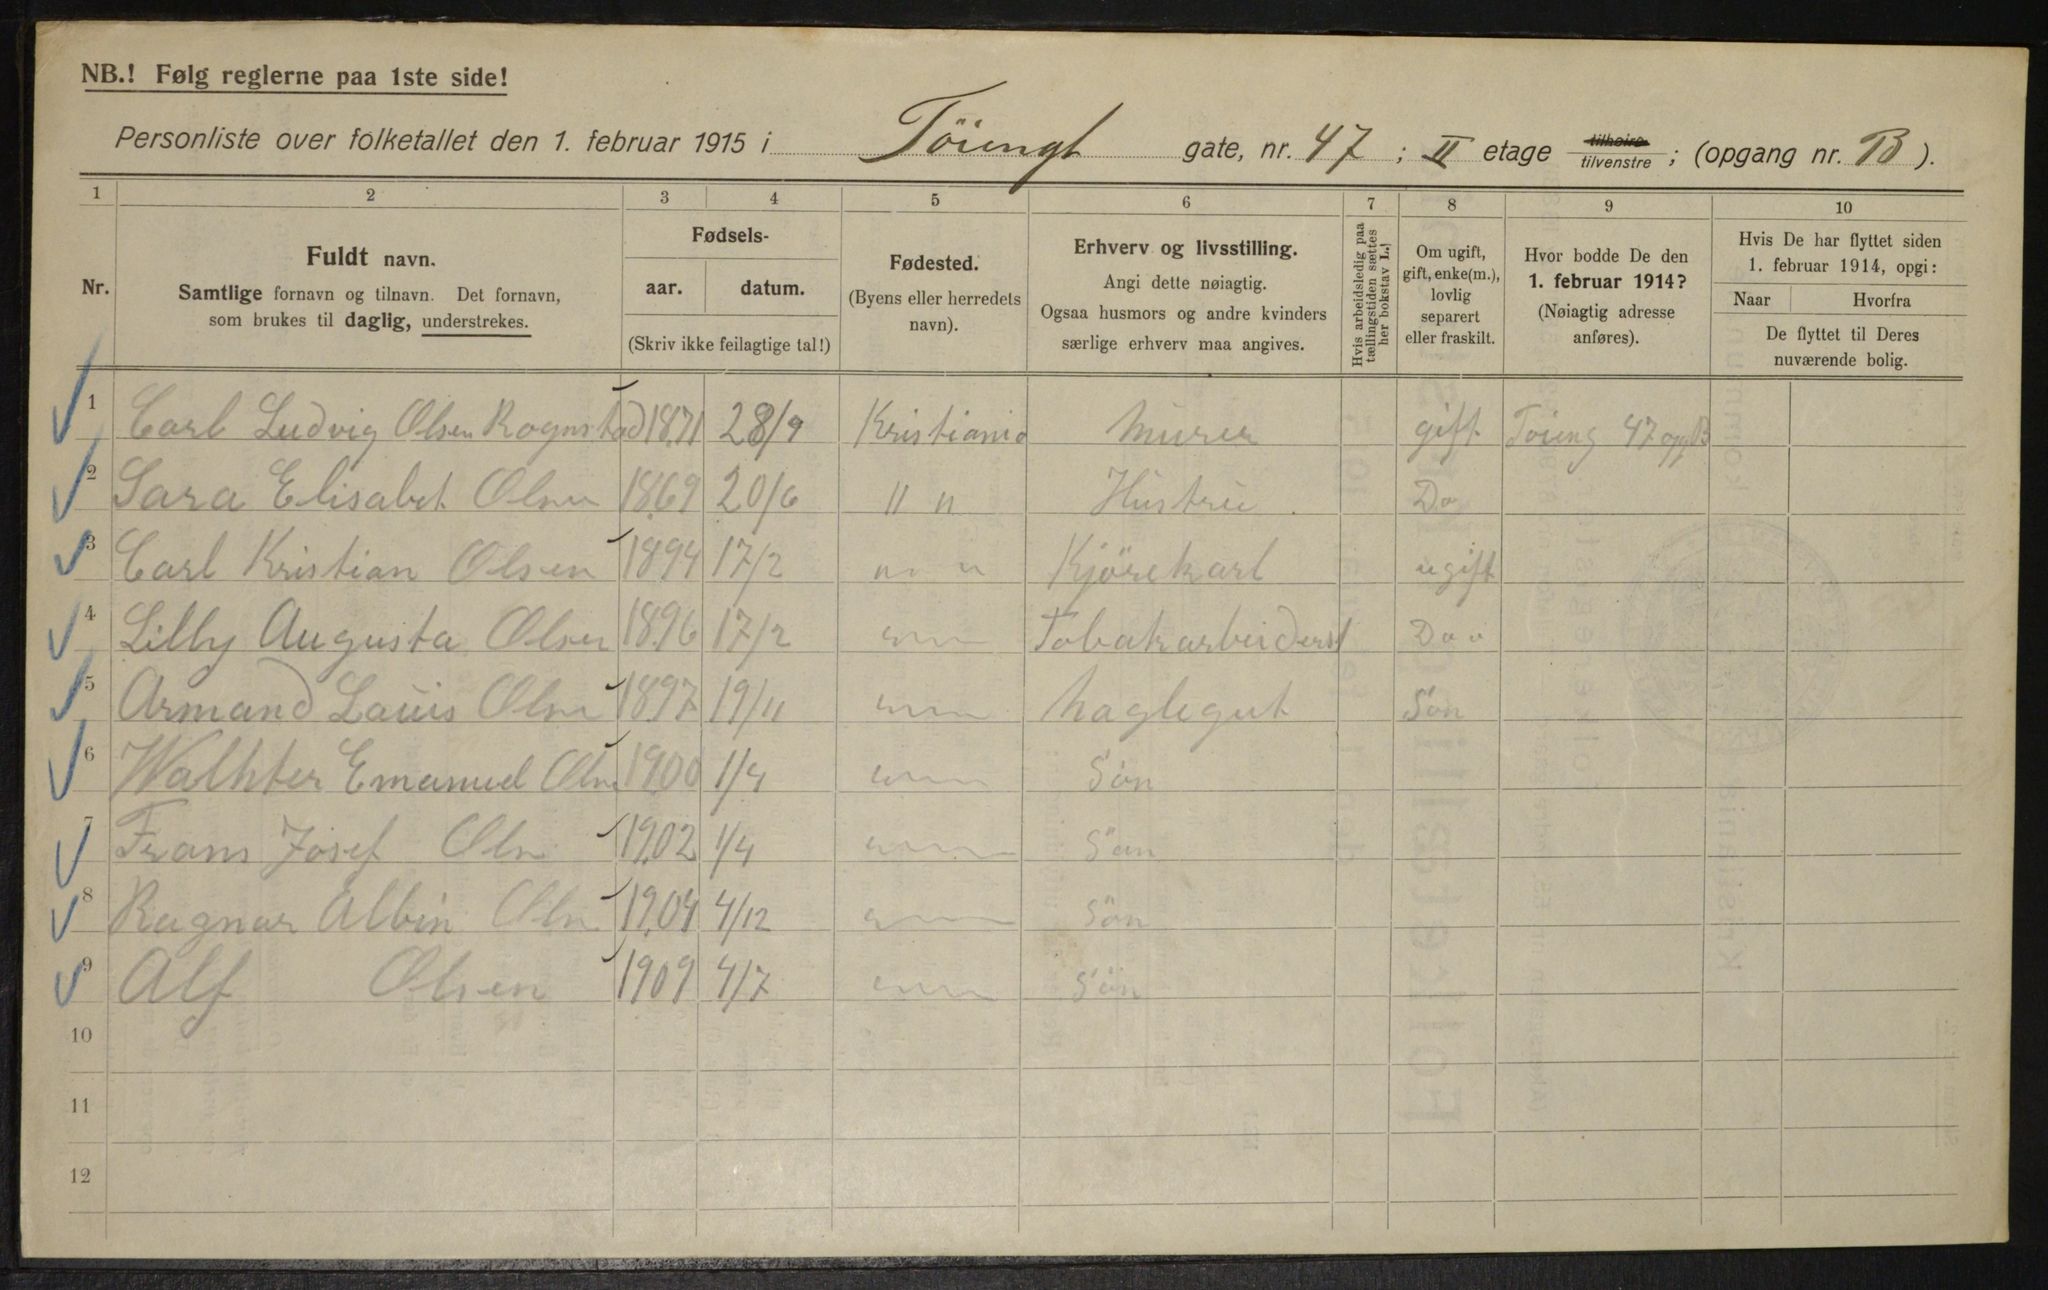 NB.! Følg reglerne paa 1ste side!
Personliste over folketallet den 1. februar 1915 i Töiengt gate, nr. 47; II etage tilhøire tilvenstre; (opgang nr. B).
1 2 3 4 5 6 7 8 9 10
Nr.
Fuldt navn.
Samtlige fornavn og tilnavn. Det fornavn,
som brukes til daglig, understrekes.
Fødsels-
aar. datum.
(Skriv ikke feilagtige tal!)
Fødested.
(Byens eller herredets
navn).
Erhverv og livsstilling.
Angi dette nøiagtig.
Ogsaa husmors og andre kvinders
særlige erhverv maa angives.
Hvis arbeidsledig paa
tællingstiden sættes
her bokstav L.
Om ugift,
gift, enke(m.),
lovlig
separert
eller fraskilt.
Hvor bodde De den
1. februar 1914?
(Nøiagtig adresse
anføres).
Hvis De har flyttet siden
1. februar 1914, opgi:
Naar Hvorfra
De flyttet til Deres
nuværende bolig.
1 Carl Ludvig Olsen Rognstad 1871 28/9 Kristiania Murer gift Töieng 47 opg B
2 Sara Elisabet Olsen 1869 20/6 " " Hustru Do
3 Carl Kristian Olsen 1894 17/2 " " Kjörekarl ugift
4 Lilly Augusta Olsen 1896 17/2 " Do
5 Armand Louis Olsen 1897 19/11 " Naglegut Sön
6 Walhter Emanuel Olsen 1900 1/4 " Sön
7 Frans Josef Olsen 1902 1/4 " Sön
8 Ragnar Albin Olsen 1904 4/12 " Sön
9 Alf Olsen 1909 4/7 " Sön
10
11
12